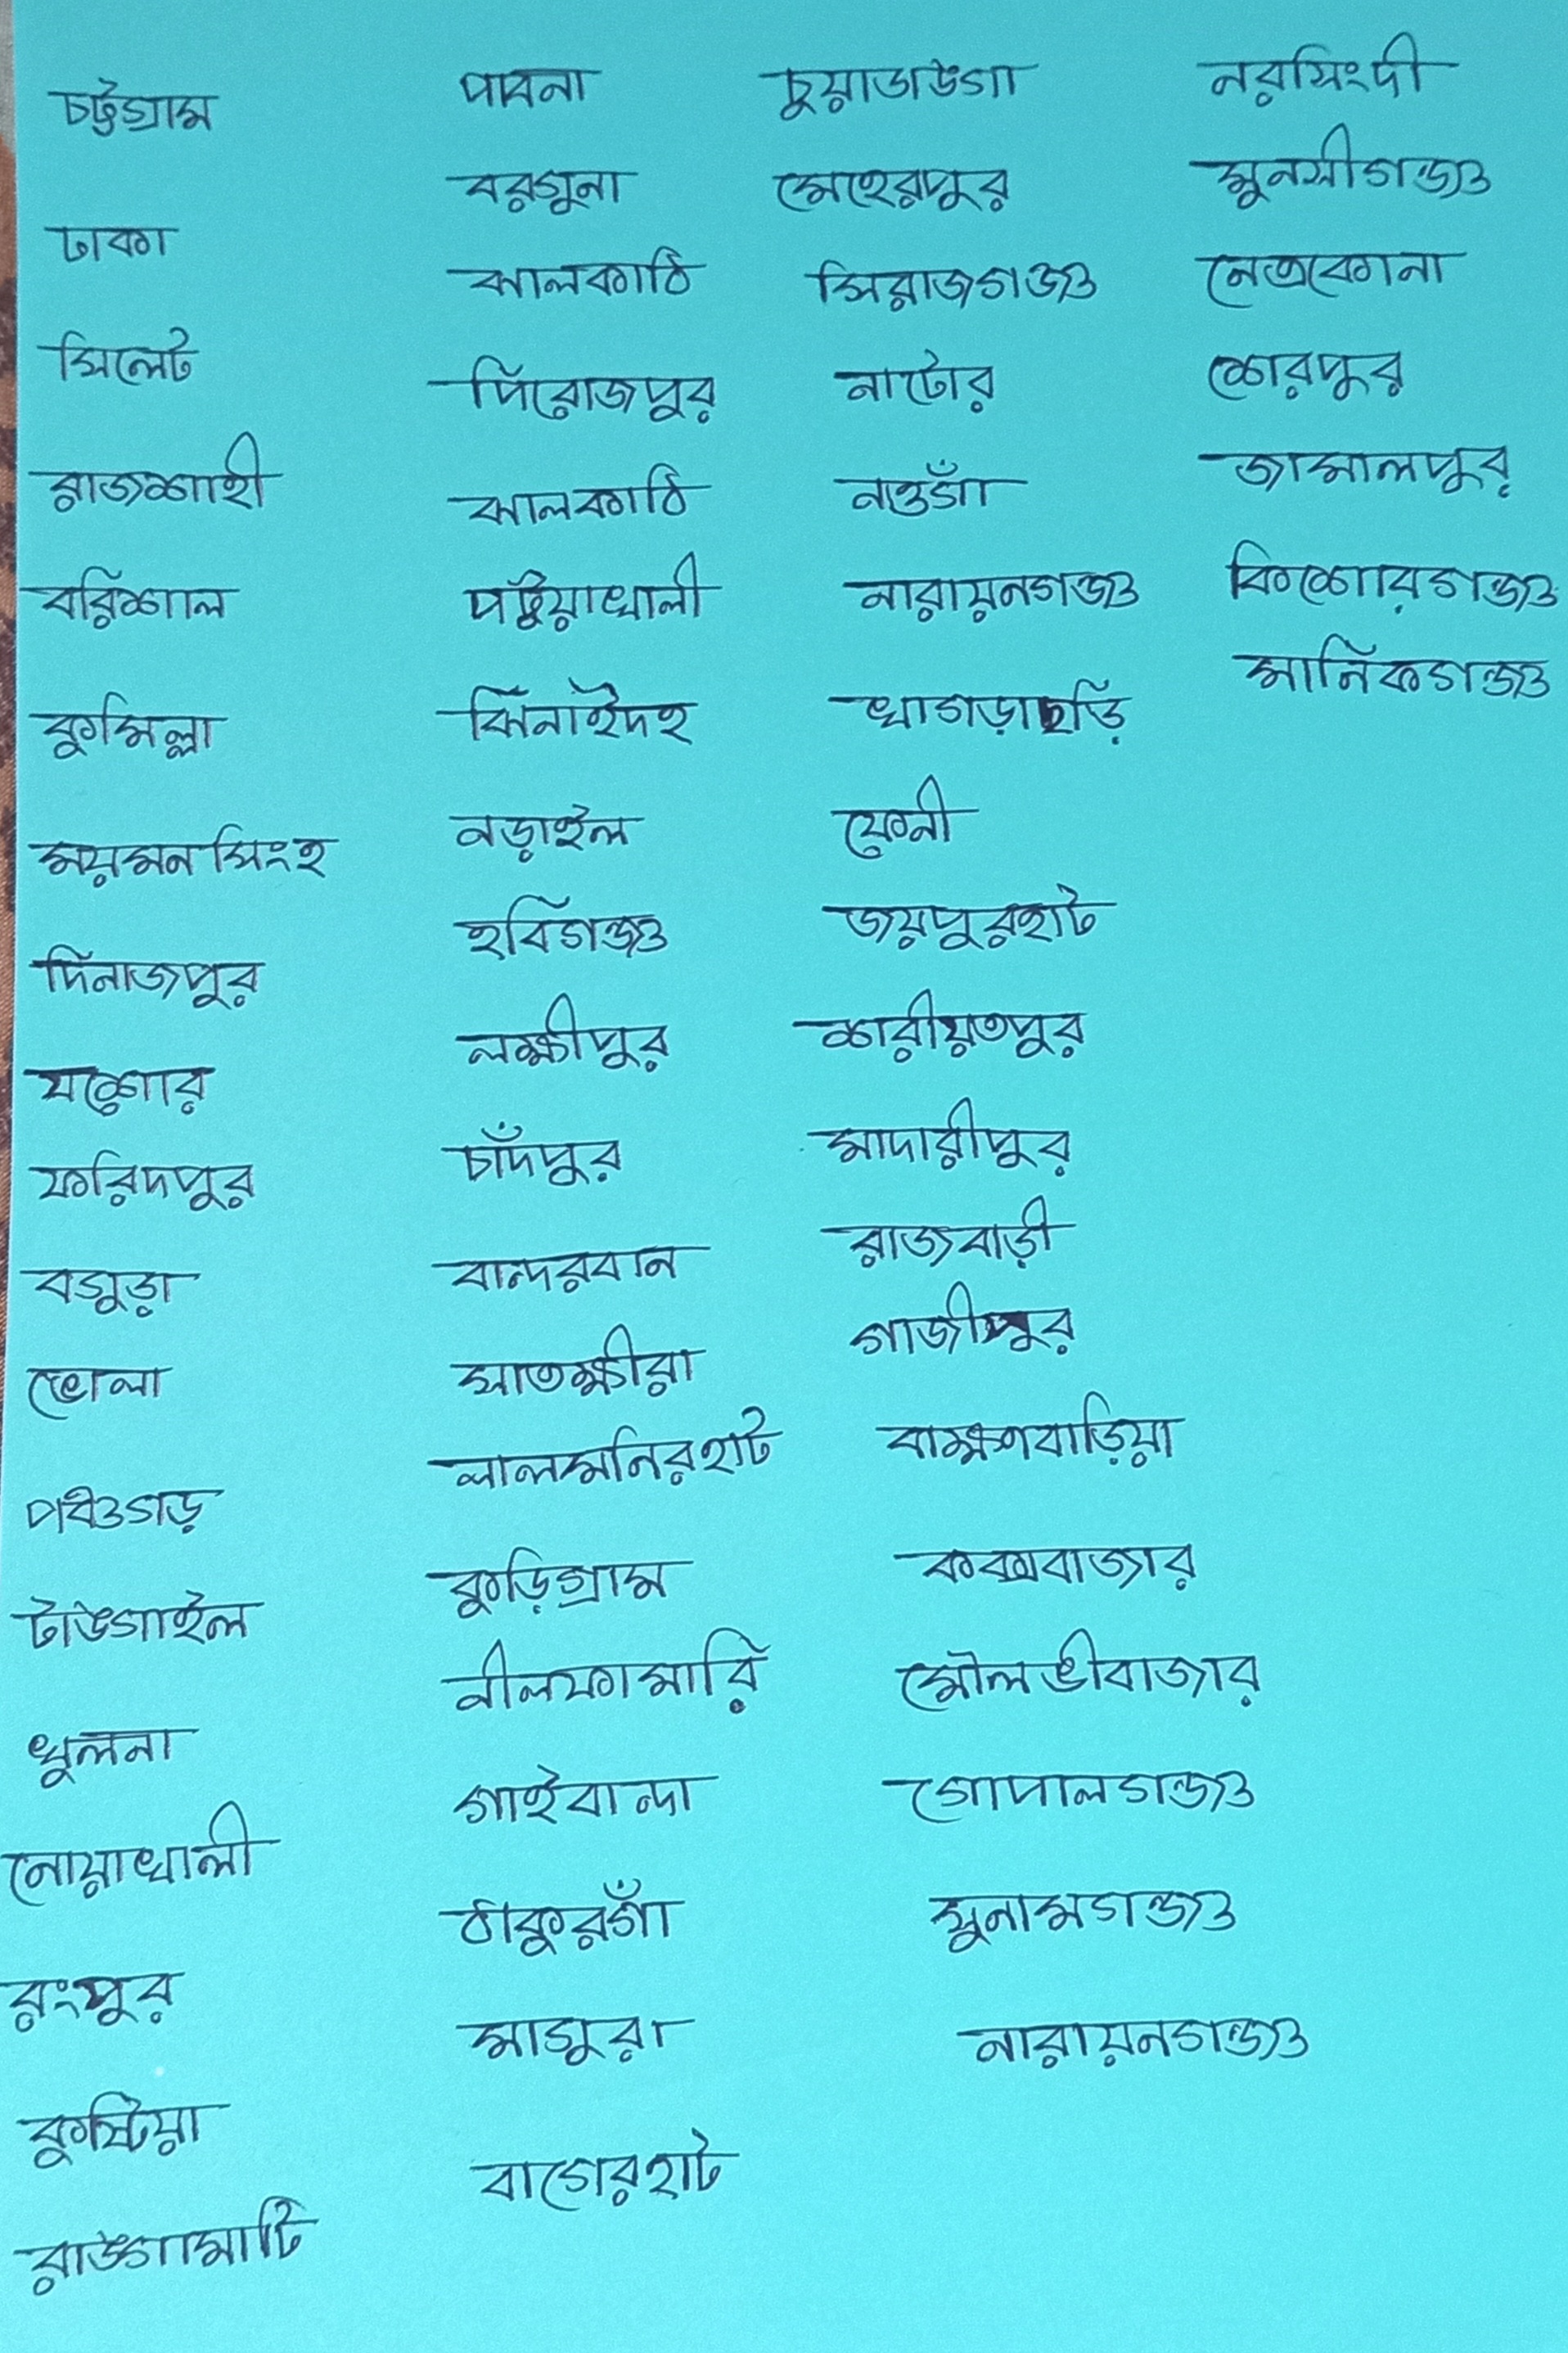 চট্টগ্রাম
ঢাকা
সিলেট
রাজশাহী
বরিশাল
কুমিল্লা
ময়মনসিংহ
দিনাজপুর
যশোর
ফরিদপুর
বগুড়া
ভোলা
পঞ্চগড়
টাঙগাইল
খুলনা
নোয়াখালী
রংপুর
কুষ্টিয়া
রাঙগামাটি
পাবনা
বরগুনা
ঝালকাঠি
পিরোজপুর
ঝালকাঠি
পটুয়াখালী
ঝিনাইদহ
নড়াইল
হবিগঞ্জ
লক্ষীপুর
চাঁদপুর
বান্দরবান
সাতক্ষীরা
লালমনিরহাট
কুড়িগ্রাম
নীলফামারি
গাইবান্দা
ঠাকুরগাঁ
মাগুরা
বাগেরহাট
চুয়াডাঙগা
মেহেরপুর
সিরাজগঞ্জ
নাটোর
নওগাঁ
নারায়নগঞ্জ
খাগড়াছড়ি
ফেনী
জয়পুরহাট
শরীয়তপুর
মাদারীপুর
রাজবাড়ী
গাজীপুর
বাক্ষণবাড়িয়া
কক্সবাজার
মৌলভীবাজার
গোপালগঞ্জ
সুনামগঞ্জ
নারায়নগঞ্জ
নরসিংদী
মুনসীগঞ্জ
নেত্রকোনা
শেরপুর
জামালপুর
কিশোরগঞ্জ
মানিকগঞ্জ